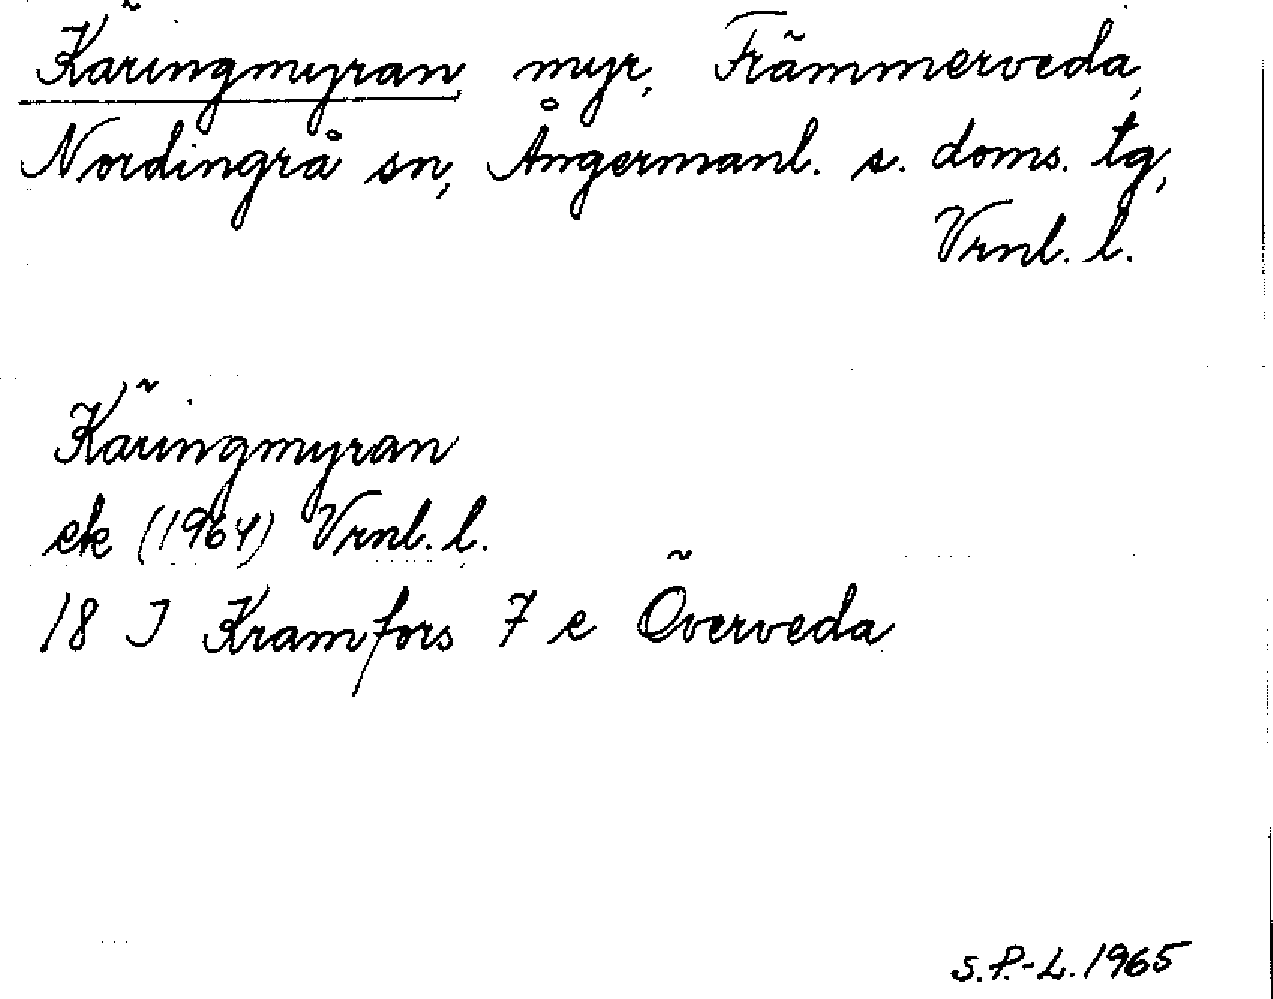 Käringmyran, myr, Främmerveda,
Nordingrå sn, Ångermanl. s. doms. tg,
Vrnl. l.
Käringmyran
ek (1964) Vrnl. l.
18 J Kramfors 7 e Överveda
S.P.-L. 1965